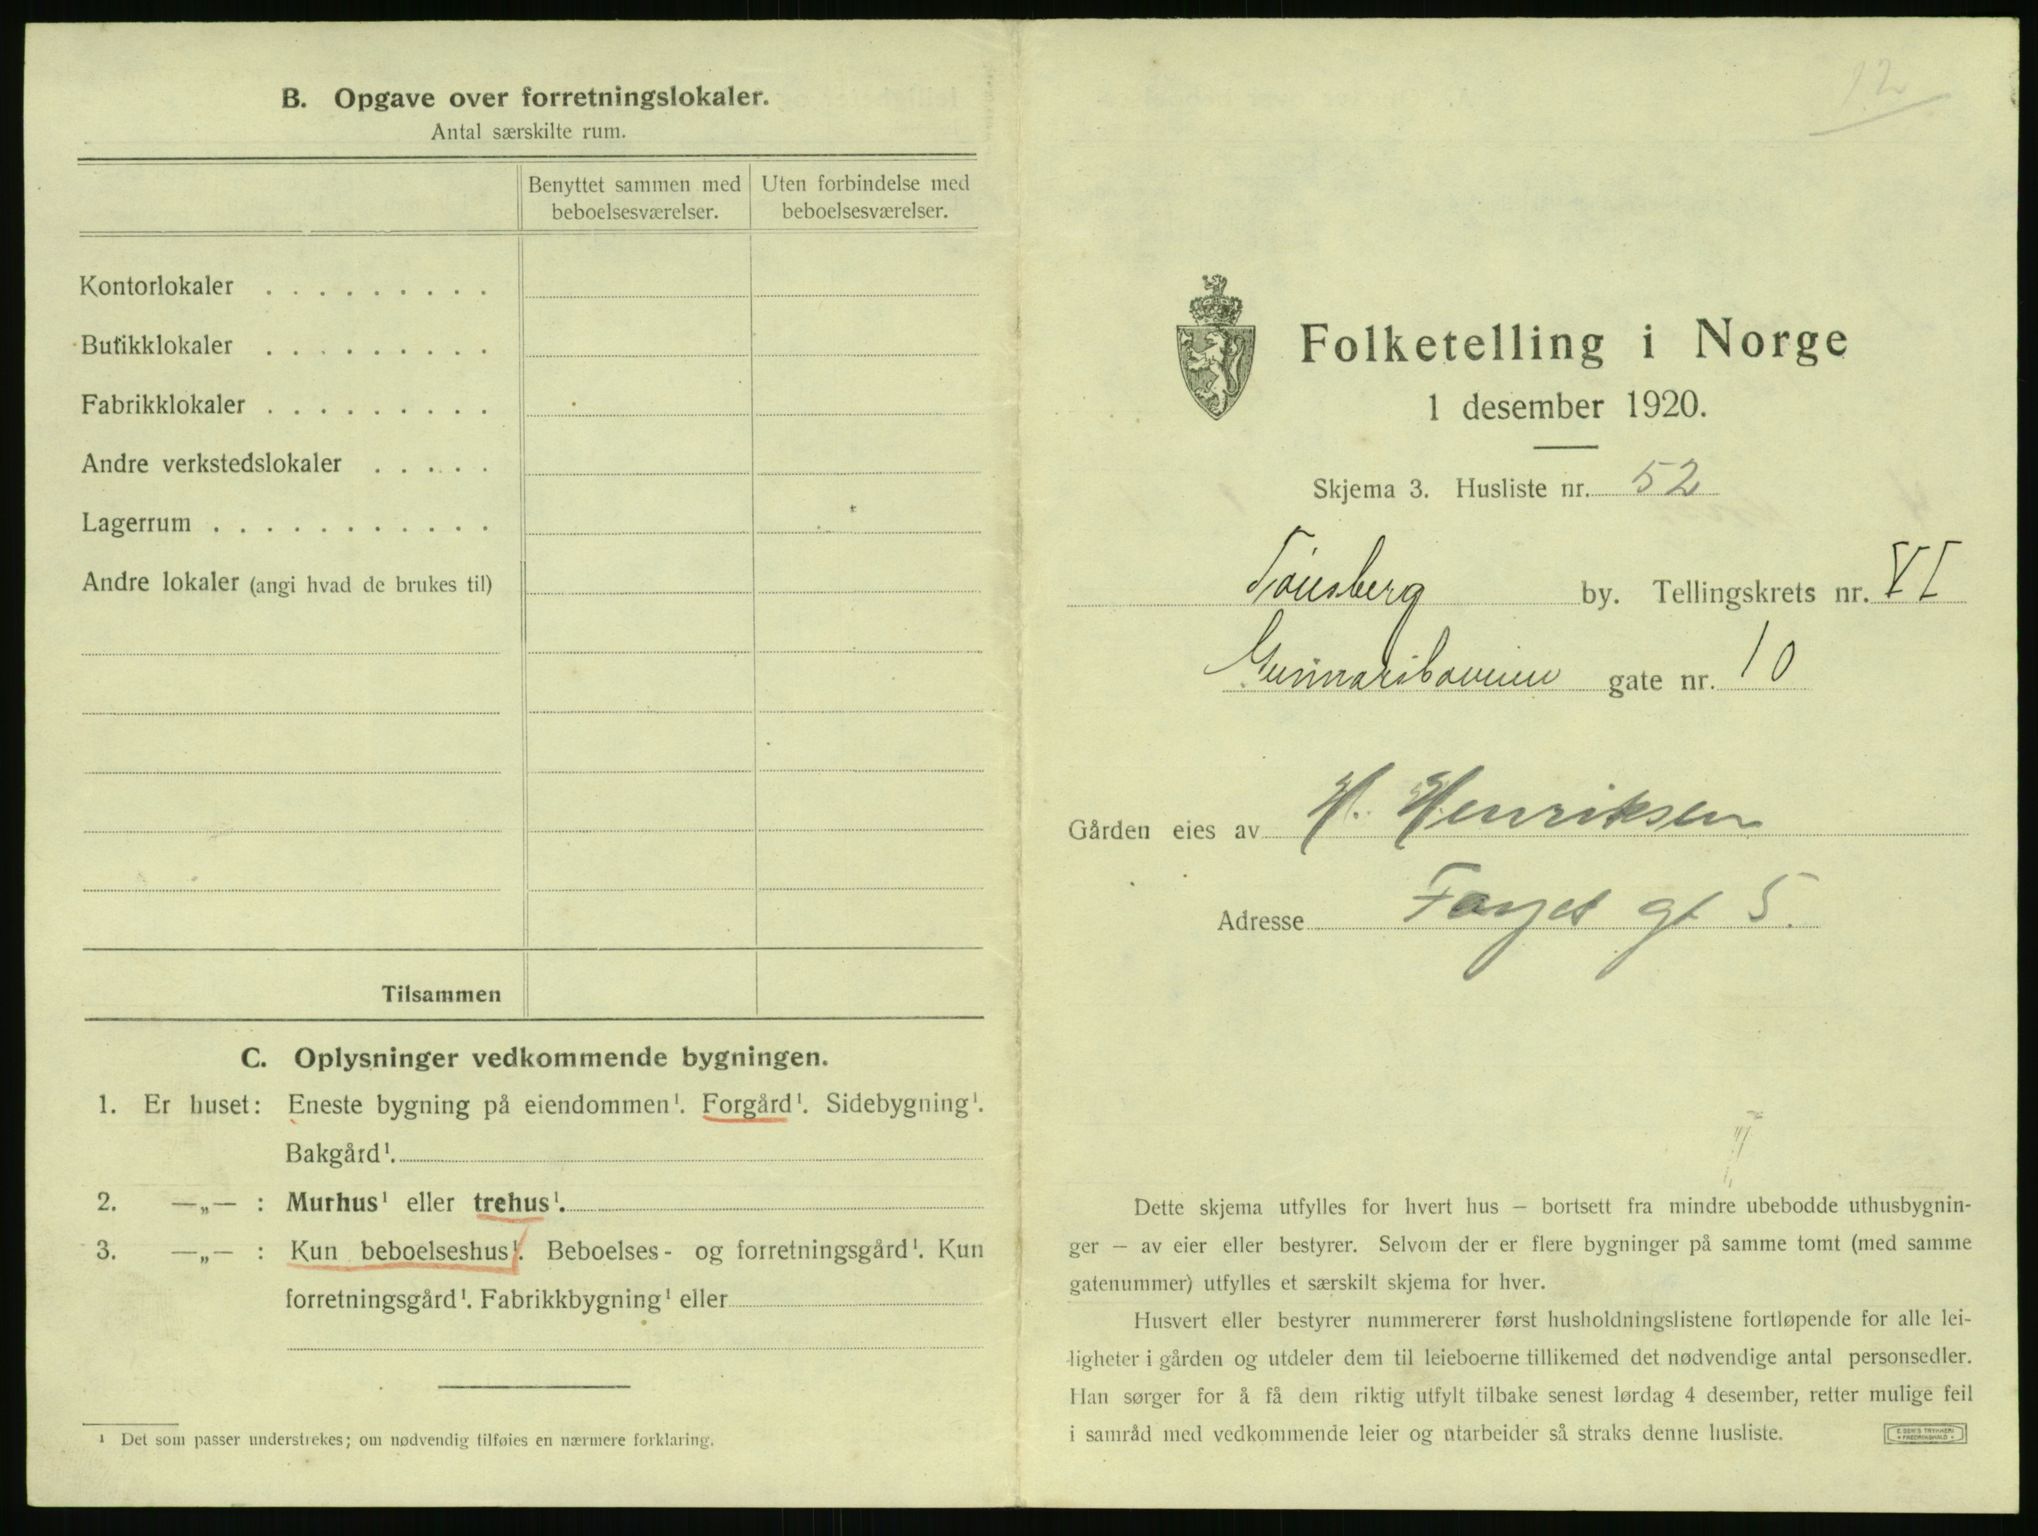 B. Opgave over forretningslokaler.
Antal særskilte rum.
Benyttet sammen med beboelsesværelser.
Uten forbindelse med beboelsesværelser.
Kontorlokaler . . . . . . . . .
Butikklokaler . . . . . . . . .
Fabrikklokaler . . . . . . . . .
Andre verkstedslokaler . . . . .
Lagerrum . . . . . . . . . . .
Andre lokaler (angi hvad de brukes til)
Tilsammen
C. Oplysninger vedkommende bygningen.
1. Er huset: Eneste bygning på eiendommen¹. Forgård¹. Sidebygning¹.
Bakgård¹.
2. —„— : Murhus¹ eller trehus¹.
3. —„— : Kun beboelseshus¹. Beboelses- og forretningsgård¹. Kun
forretningsgård¹. Fabrikkbygning¹ eller
¹ Det som passer understrekes; om nødvendig tilføies en nærmere forklaring.
12
Folketelling i Norge
1 desember 1920.
Skjema 3. Husliste nr. 52
Tönsberg by. Tellingskrets nr. VI
gate nr. 10
Gården eies av H. Henriksen
Adresse gt 5.
Dette skjema utfylles for hvert hus – bortsett fra mindre ubebodde uthusbygnin-
ger – av eier eller bestyrer. Selvom der er flere bygninger på samme tomt (med samme
gatenummer) utfylles et særskilt skjema for hver.
Husvert eller bestyrer nummererer først husholdningslistene fortløpende for alle lei-
ligheter i gården og utdeler dem til leieboerne tillikemed det nødvendige antal personsedler.
Han sørger for å få dem riktig utfylt tilbake senest lørdag 4 desember, retter mulige feil
i samråd med vedkommende leier og utarbeider så straks denne husliste.